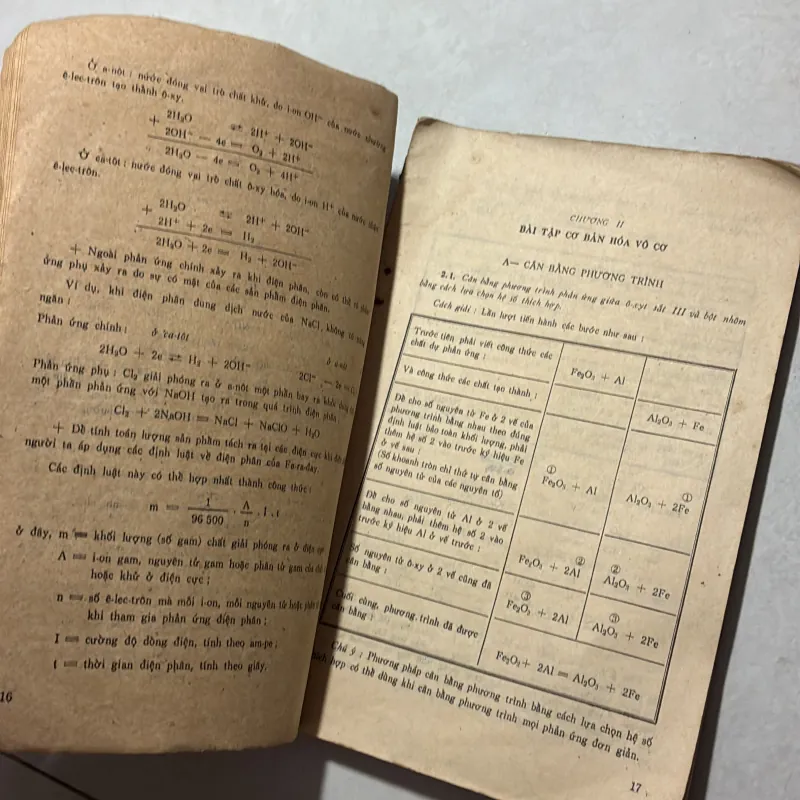 Ở a-nột : nước đóng vai trò chất khử, do i-on OH⁻ của nước nhường
ê-lec-trôn tạo thành ô-xy.
2H₂O ⇌ 2H⁺ + 2OH⁻
+
2OH⁻ — 4e = O₂ + 2H⁺
2H₂O — 4e = O₂ + 4H⁺
Ở ca-tôt : nước đóng vai trò chất ô-xy hóa, do i-on H⁺ của nước nhận
ê-lec-trôn.
2H₂O ⇌ 2H⁺ + 2OH⁻
+
2H⁺ + 2e = H₂
2H₂O + 2e = H₂ + 2OH⁻
+ Ngoài phản ứng chính xảy ra khi điện phân, còn có thể có phản
ứng phụ xảy ra do sự có mặt của các sản phẩm điện phân.
Ví dụ, khi điện phân dung dịch nước của NaCl, không có màng
ngăn :
Phản ứng chính : ở ca-tôt ở a-nôt
2H₂O + 2e ⇌ H₂ + 2OH⁻ 2Cl⁻ — 2e =
Phản ứng phụ : Cl₂ giải phóng ra ở a-nôt một phần bay ra khỏi
một phần phản ứng với NaOH tạo ra trong quá trình điện phân
Cl₂ + 2NaOH = NaCl + NaClO + H₂O
+ Để tính toán lượng sản phẩm tách ra tại các điện cực khi điện
người ta áp dụng các định luật về điện phân của Fa-ra-đay.
Các định luật này có thể hợp nhất thành công thức :
m = 1/96 500 . A/n . I . t
ở đây, m = khối lượng (số gam) chất giải phóng ra ở điện cực
A = i-on gam, nguyên tử gam hoặc phân tử gam của chất
hoặc khử ở điện cực ;
n = số ê-lec-trôn mà mỗi i-on, mỗi nguyên tử hoặc phân
khi tham gia phản ứng điện phân ;
I = cường độ dòng điện, tính theo am-pe ;
t = thời gian điện phân, tính theo giây.
16
CHƯƠNG II
BÀI TẬP CƠ BẢN HÓA VÔ CƠ
A— CÂN BẰNG PHƯƠNG TRÌNH
2.1. Cân bằng phương trình phản ứng giữa ô-xyt sắt III và bột nhôm
bằng cách lựa chọn hệ số thích hợp.
Cách giải : Lần lượt tiến hành các bước như sau :
Trước tiên phải viết công thức các
chất dự phản ứng :
Fe₂O₃ + Al
Và công thức các chất tạo thành :
Al₂O₃ + Fe
Để cho số nguyên tử Fe ở 2 vế của
phương trình bằng nhau theo đúng
định luật bảo toàn khối lượng, phải
thêm hệ số 2 vào trước ký hiệu Fe
ở vế sau :
(Số khoanh tròn chỉ thứ tự cân bằng
số nguyên tử của các nguyên tố)
①
Fe₂O₃ + Al
①
Al₂O₃ + 2Fe
Để cho số nguyên tử Al ở 2 vế
bằng nhau, phải thêm hệ số 2 vào
trước ký hiệu Al ở vế trước :
②
Fe₂O₃ + 2Al
②
Al₂O₃ + 2Fe
Số nguyên tử ô-xy ở 2 vế cũng đã
cân bằng :
③
Fe₂O₃ + 2Al
③
Al₂O₃ + 2Fe
Cuối cùng, phương trình đã được
cân bằng :
Fe₂O₃ + 2Al = Al₂O₃ + 2Fe
Chú ý : Phương pháp cân bằng phương trình bằng cách lựa chọn hệ số
thích hợp có thể dùng khi cân bằng phương trình mọi phản ứng đơn giản.
17